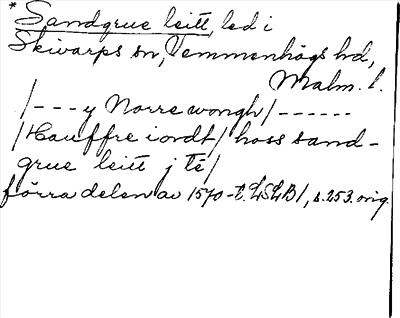 * Sandgrue leitt, led i
Skivarps sn, Vemmenhögs hd,
Malm. l.
/---y Norre wongh/------
/Hauffre iordt/ hoss sand-
grue leitt j Te/
förra delen av 1570-t. LSLB/, s. 253. orig.